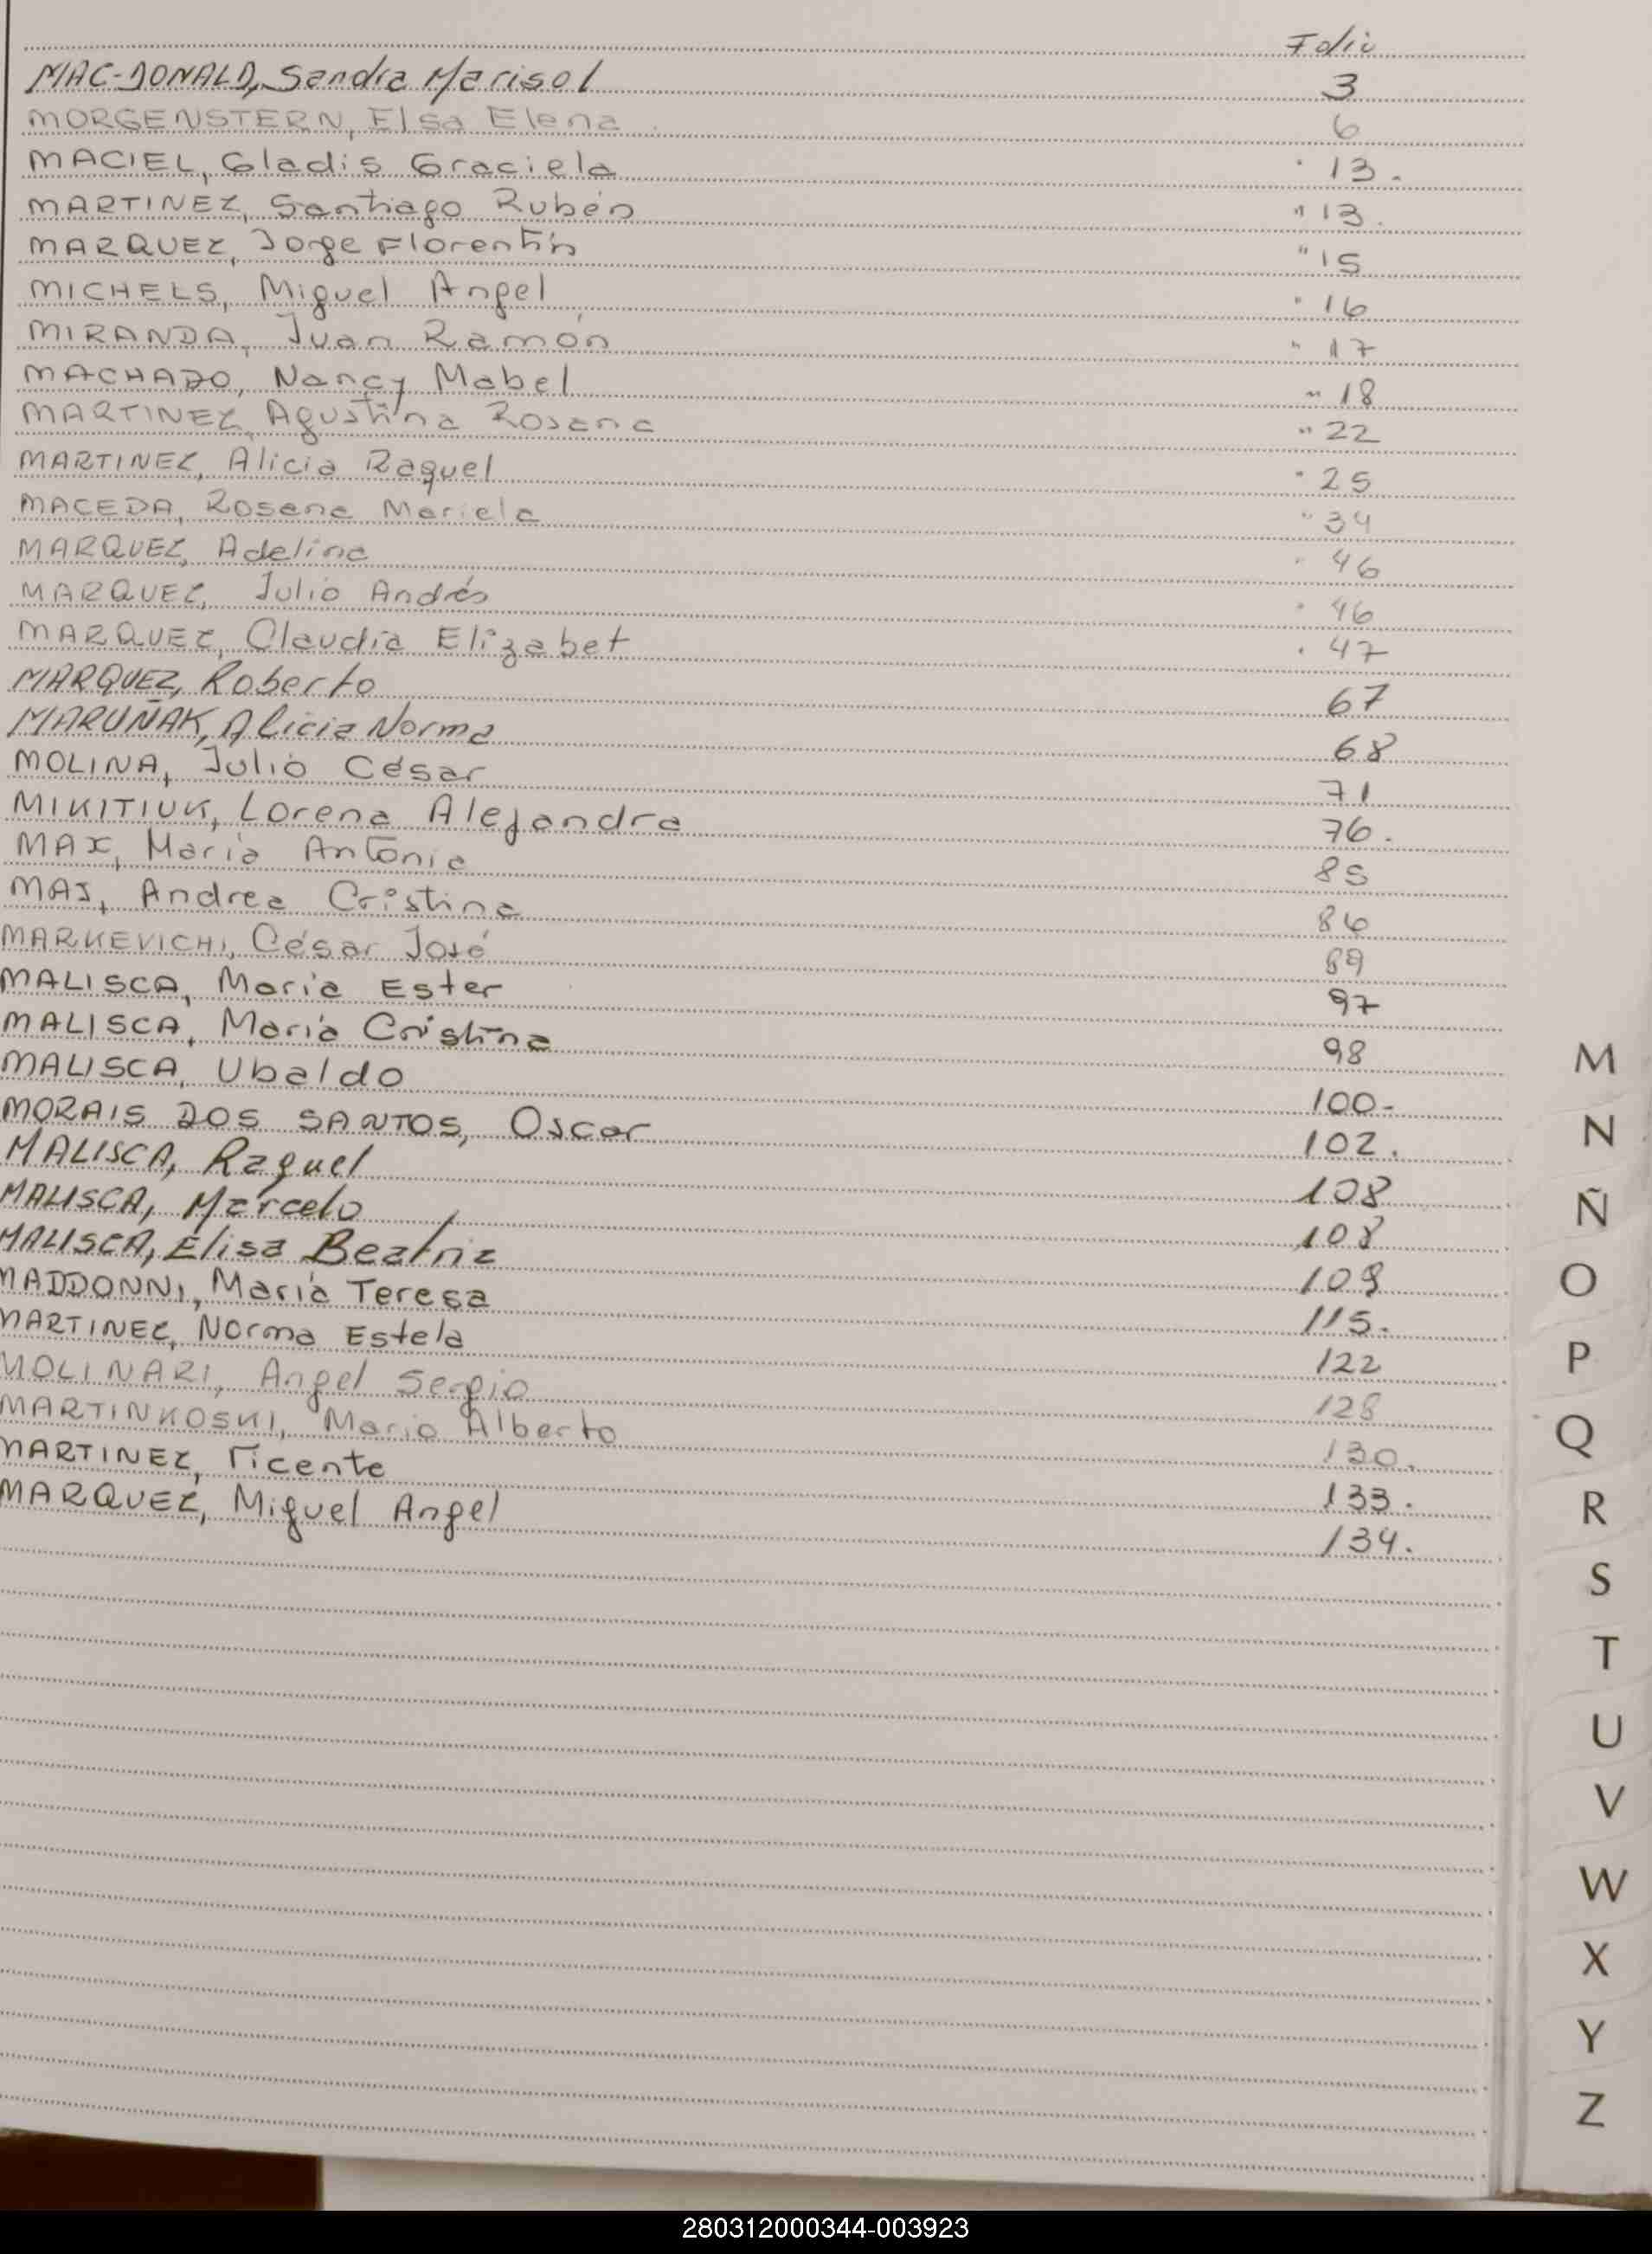 Folio
MAC-DONALD, Sandra Marisol 3
MORGENSTERN, Elsa Elena 6
MACIEL, Gladis Graciela " 13.
MARTINEZ, Santiago Rubén " 13.
MARQUEZ, Jorge Florentín " 15
MICHELS, Miguel Angel " 16
MIRANDA, Juan Ramón " 17
MACHADO, Nancy Mabel " 18
MARTINEZ, Agustina Rosana " 22
MARTINEZ, Alicia Raquel " 25
MACEDA, Rosana Mariela " 34
MARQUEZ, Adelina " 46
MARQUEZ, Julio Andrés " 46
MARQUEZ, Claudia Elizabet " 47
MARQUEZ, Roberto 67
MARUÑAK, Alicia Norma 68
MOLINA, Julio César 71
MIKITIUK, Lorena Alejandra 76.
MAX, María Antonia 85
MAJ, Andrea Cristina 86
MARKEVICHI, César José 89
MALISCA, María Ester 97
MALISCA, María Cristina 98
MALISCA, Ubaldo 100-
MORAIS DOS SANTOS, Oscar 102.
MALISCA, Raquel 108
MALISCA, Marcelo 108
MALISCA, Elisa Beatriz 109
MADDONNI, María Teresa 115.
MARTINEZ, Norma Estela 122
MOLINARI, Angel Sergio 128
MARTINKOSKI, Mario Alberto 130.
MARTINEZ, Vicente 133.
MARQUEZ, Miguel Angel 134.
M
N
Ñ
O
P
Q
R
S
T
U
V
W
X
Y
Z
280312000344-003923